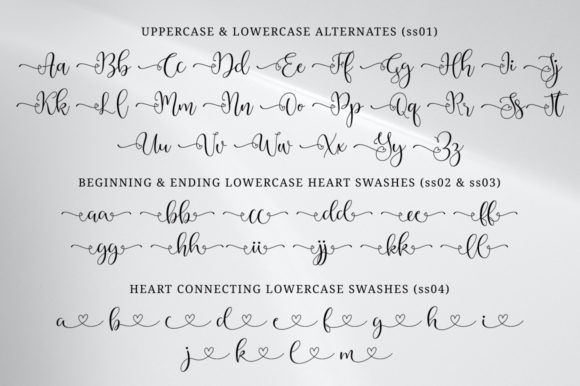 UPPERCASE & LOWERCASE ALTERNATES (ss01)
Aa Bb Cc Dd Ee Ff Gg Hh Ii Jj
Kk Ll Mm Nn Oo Pp Qq Rr Ss Tt
Uu Vv Ww Xx Yy Zz
BEGINNING & ENDING LOWERCASE HEART SWASHES (ss02 & ss03)
aa bb cc dd ee ff
gg hh ii jj kk ll
HEART CONNECTING LOWERCASE SWASHES (ss04)
a b c d e f g h i
j k l m